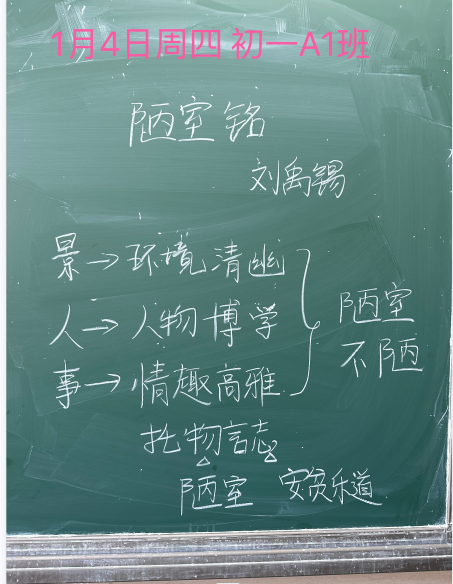 1月4日周四 初一A1班
陋室铭
刘禹锡
景→环境清幽
人→人物博学
事→情趣高雅
陋室
不陋
托物言志
陋室 安贫乐道